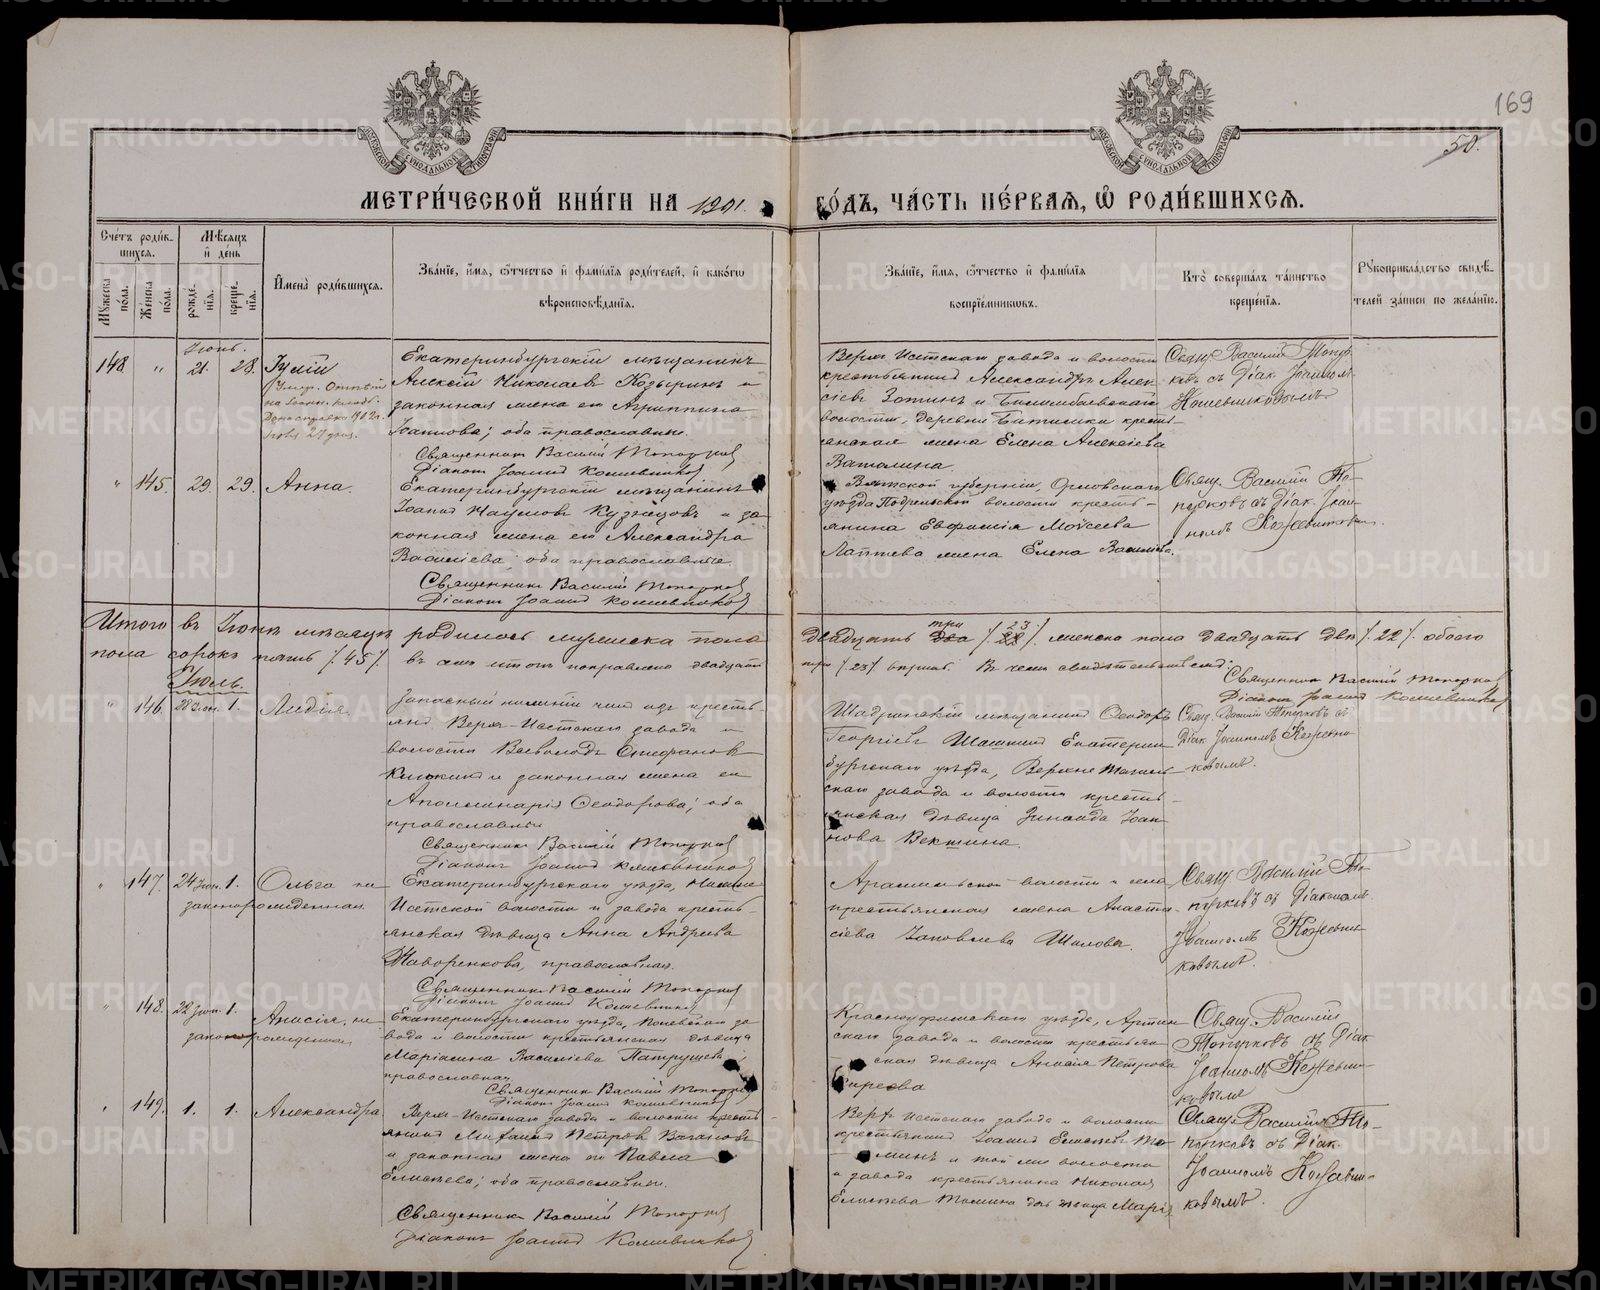 169
50.
МЕТРИ́ЧЕСКОЙ КНИ́ГИ НА 1901. ГО́ДЪ, ЧА́СТЬ ПЕ́РВАЯ, Ѡ РОДИ́ВШИХСЯ.
Сче́тъ роди́в-
шихся.
Мꙋ́жеска по́ла.
Же́нска по́ла.
Мѣ́сяцъ
и де́нь
рожде́-
нїя.
креще́-
нїя.
И̓мена̀ роди́вшихся.
Зва́нїе, и́мя, ѻ́тчество и фами́лїя роди́телей, и како́гѡ
вѣроисповѣ́данїя.
Зва́нїе, и́мя, ѻ́тчество и фами́лїя
воспрїе́мниковъ.
Кто̀ соверша́лъ та́инство
креще́нїя.
Рꙋкоприкла́дство свидѣ́-
телей за́писи по жела́нїю.
Іюнь.
148 " 21. 28. Іулій
Екатеринбургскій мѣщанинъ
Алексѣй Николаевъ Козыринъ и
законная жена его Агриппина
Іоаннова; оба православные.
Священникъ Василій Топорковъ
Діаконъ Іоаннъ Кожевниковъ
Верхъ-Исетскаго завода и волости
крестьянинъ Александръ Алек-
сіевъ Зотинъ и Билимбаевской
волости, деревни Битимки кресть-
янская жена Елена Алексіева
Ватолина.
Свящ. Василій Топор-
ковъ съ Діак. Іоанномъ
Кожевниковымъ
" 145. 29. 29. Анна.
Екатеринбургскій мѣщанинъ
Іоаннъ Наумовъ Кузнецовъ и за-
конная жена его Александра
Василіева; оба православные.
Священникъ Василій Топорковъ
Діаконъ Іоаннъ Кожевниковъ
Вятской губерніи, Орловскаго
уѣзда волости кресть-
янина Евфимія Моѵсеева
Лаптева жена Елена Василіева.
Свящ. Василій То-
порковъ съ Діак. Іоан-
номъ Кожевниковым.
Итого въ Іюнѣ мѣсяцѣ родилось мужеска пола двадцать три два /23/ женска пола двадцать два /22/ обоего
пола сорокъ пять /45/. въ семъ итогѣ поправлено двадцать
три /23/ вѣрно. Въ чемъ свидѣтельствуемъ:
Священникъ Василій Топорковъ
Діаконъ Іоаннъ Кожевниковъ
Іюль.
" 146. 28 Іюн. 1. Лидія
Запасный нижній чинъ изъ кресть-
янъ Верхъ-Исетскаго завода и
волости Всеволодъ Стефановъ
и законная жена его
Аполлинарія Ѳеодорова; оба
православные
Священникъ Василій Топорковъ
Діаконъ Іоаннъ Кожевниковъ
Шадринскій мѣщанинъ Ѳеодоръ
Георгіевъ и Екатерин-
бургскаго уѣзда, Верхне-Тагиль-
скаго завода и волости кресть-
янская дѣвица Зинаида Іоан-
нова Векшина.
Свящ. Василій Топорковъ съ
Діак. Іоанномъ Кожевни-
ковымъ.
" 147. 24 Іюн. 1. Ольга не-
законорожденная.
Екатеринбургскаго уѣзда, Нижне-
Исетской волости и завода кресть-
янская дѣвица Анна Андреева
Жаворенкова, православная.
Священникъ Василій Топорковъ
Діаконъ Іоаннъ Кожевниковъ
Арамильской волости и села
крестьянская жена Анаста-
сіева Іаковлева Шилова.
Свящ. Василій То-
порковъ съ Діакономъ
Іоанномъ Кожевни-
ковымъ.
" 148. 22 Іюн. 1. Анисія, не-
законорожденная
Екатеринбургскаго уѣзда, за-
вода и волости крестьянская дѣвица
Маріамна Василіева Патрушева
православная
Священникъ Василій Топорковъ
Діаконъ Іоаннъ Кожевниковъ
Красноуфимскаго уѣзда, Артин-
скаго завода и волости крестьян-
ская дѣвица Анисія Петрова
Свящ. Василій
Топорковъ съ Діак.
Іоанномъ Кожевни-
ковымъ
" 149. 1. 1. Александра
Верхъ-Исетскаго завода и волости кресть-
янинъ Михаилъ Петровъ Вагановъ
и законная жена его Павла
Елисѣева; оба православные.
Священникъ Василій Топорковъ
Діаконъ Іоаннъ Кожевниковъ
Верхъ-Исетскаго завода и волости
крестьянинъ Іоаннъ Елисѣевъ То-
минъ и той же волости
и завода крестьянина Николая
Елисѣева Томина дочь дѣвица Марія
Свящ. Василій То-
порковъ съ Діак.
Іоанномъ Кожевни-
ковымъ.
METRIKI.GASO-URAL.RU